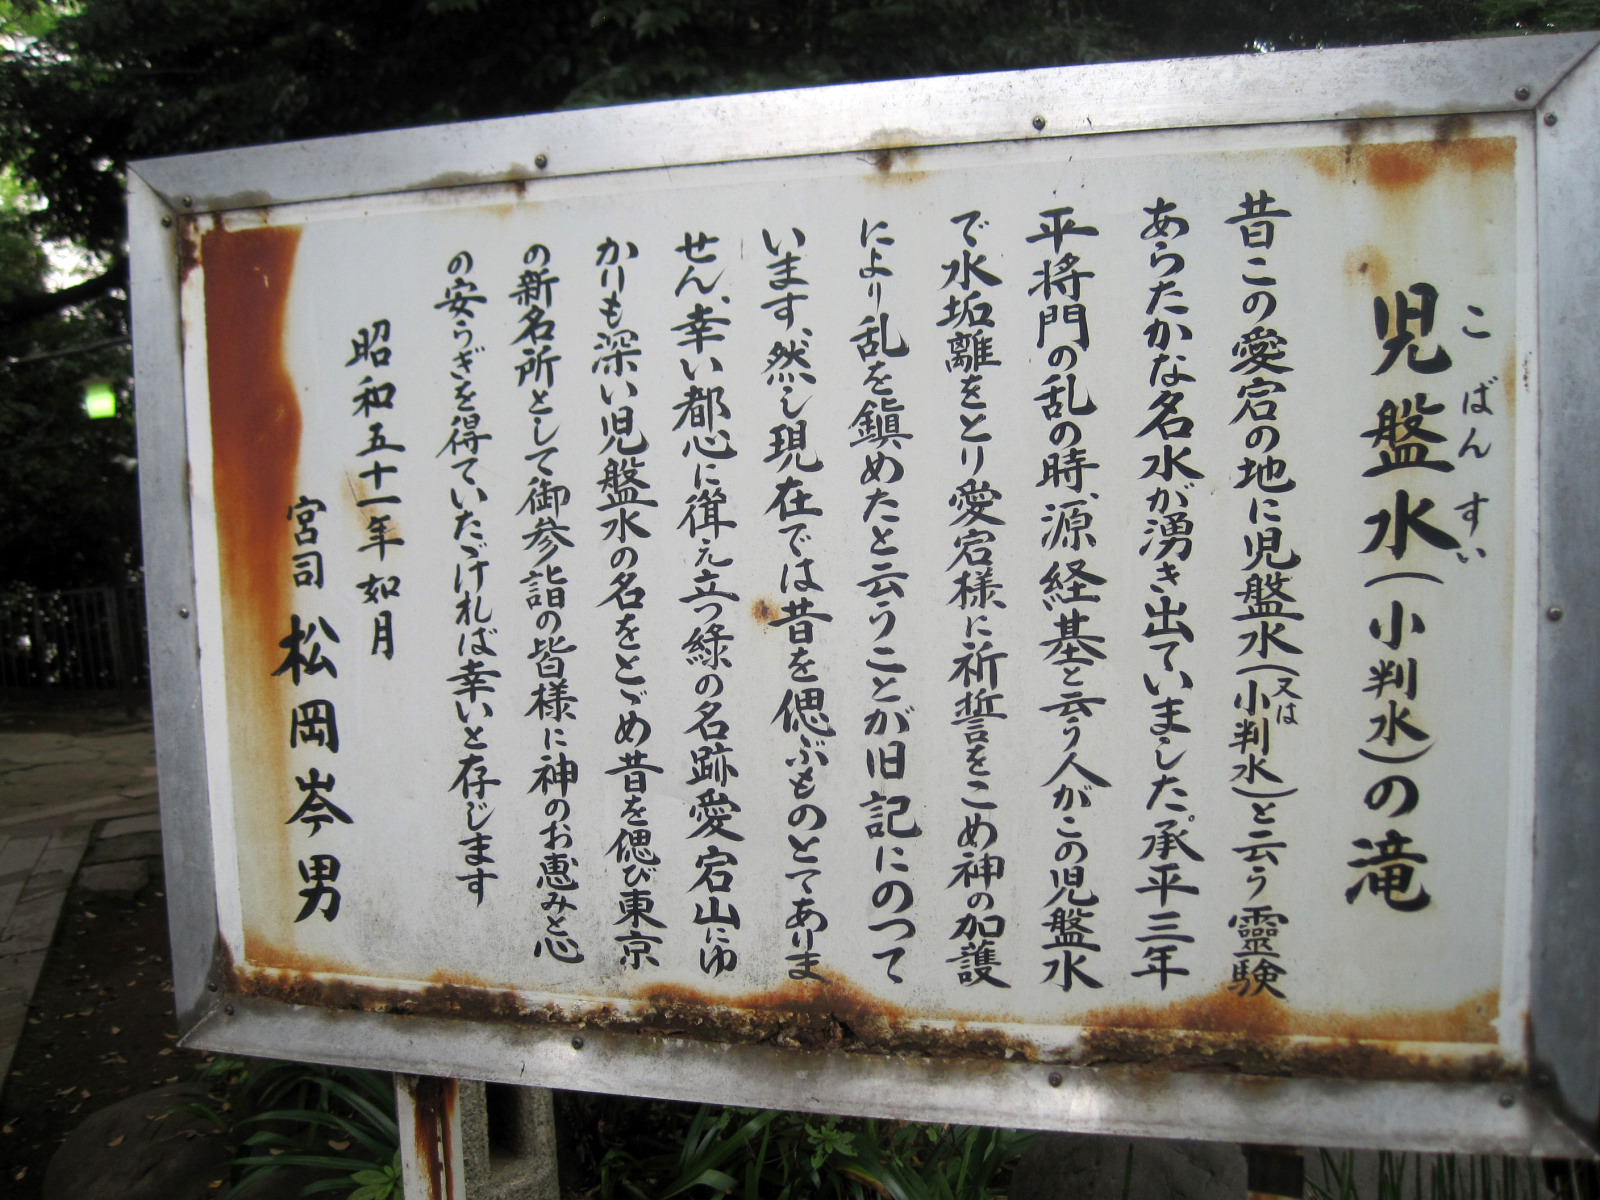 こばんすい
児盤水(小判水)の滝
昔この愛宕の地に児盤水(又は小判水)と云う靈験
あらたかな名水が湧き出ていました。承平三年
平将門の乱の時、源経基と云う人がこの児盤水
で水垢離をとり愛宕様に祈誓をこめ神の加護
により乱を鎮めたと云うことが旧記にのつて
います、然し現在では昔を偲ぶものとてありま
せん、幸い都心に聳え立つ緑の名跡愛宕山にゆ
かりも深い児盤水の名をとゞめ昔を偲び東京
の新名所として御参詣の皆様に神のお恵みと心
の安らぎを得ていたゞければ幸いと存じます
昭和五十一年如月
宮司 松岡岑男